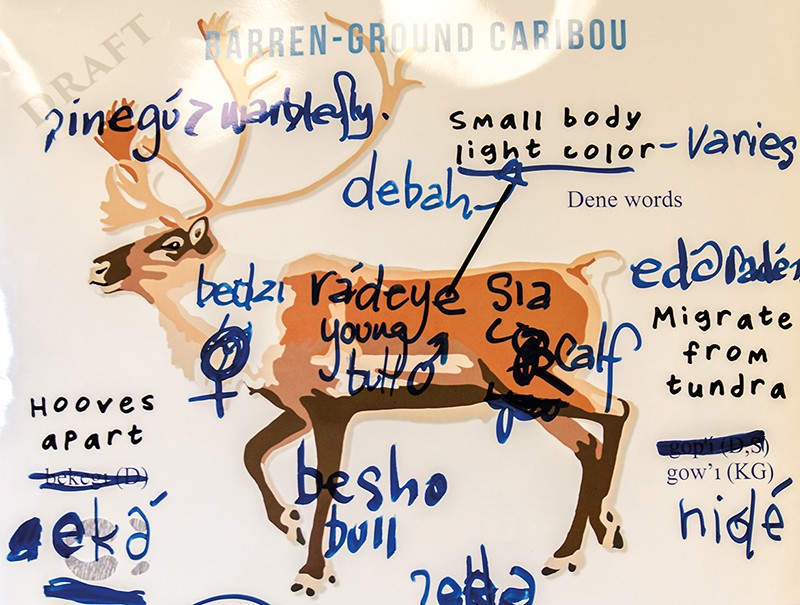 DRAFT
BARREN-GROUND CARIBOU
warblefly.
Small body
light color - varies
debah
Dene words
bedzı rádeye sıa
young
bull ♂
♀
calf
Migrate
from
tundra
Hooves
apart
bekegı (D)
gop'ı (D,S)
gow'ı (KG)
eká
besho
bull
nıdé